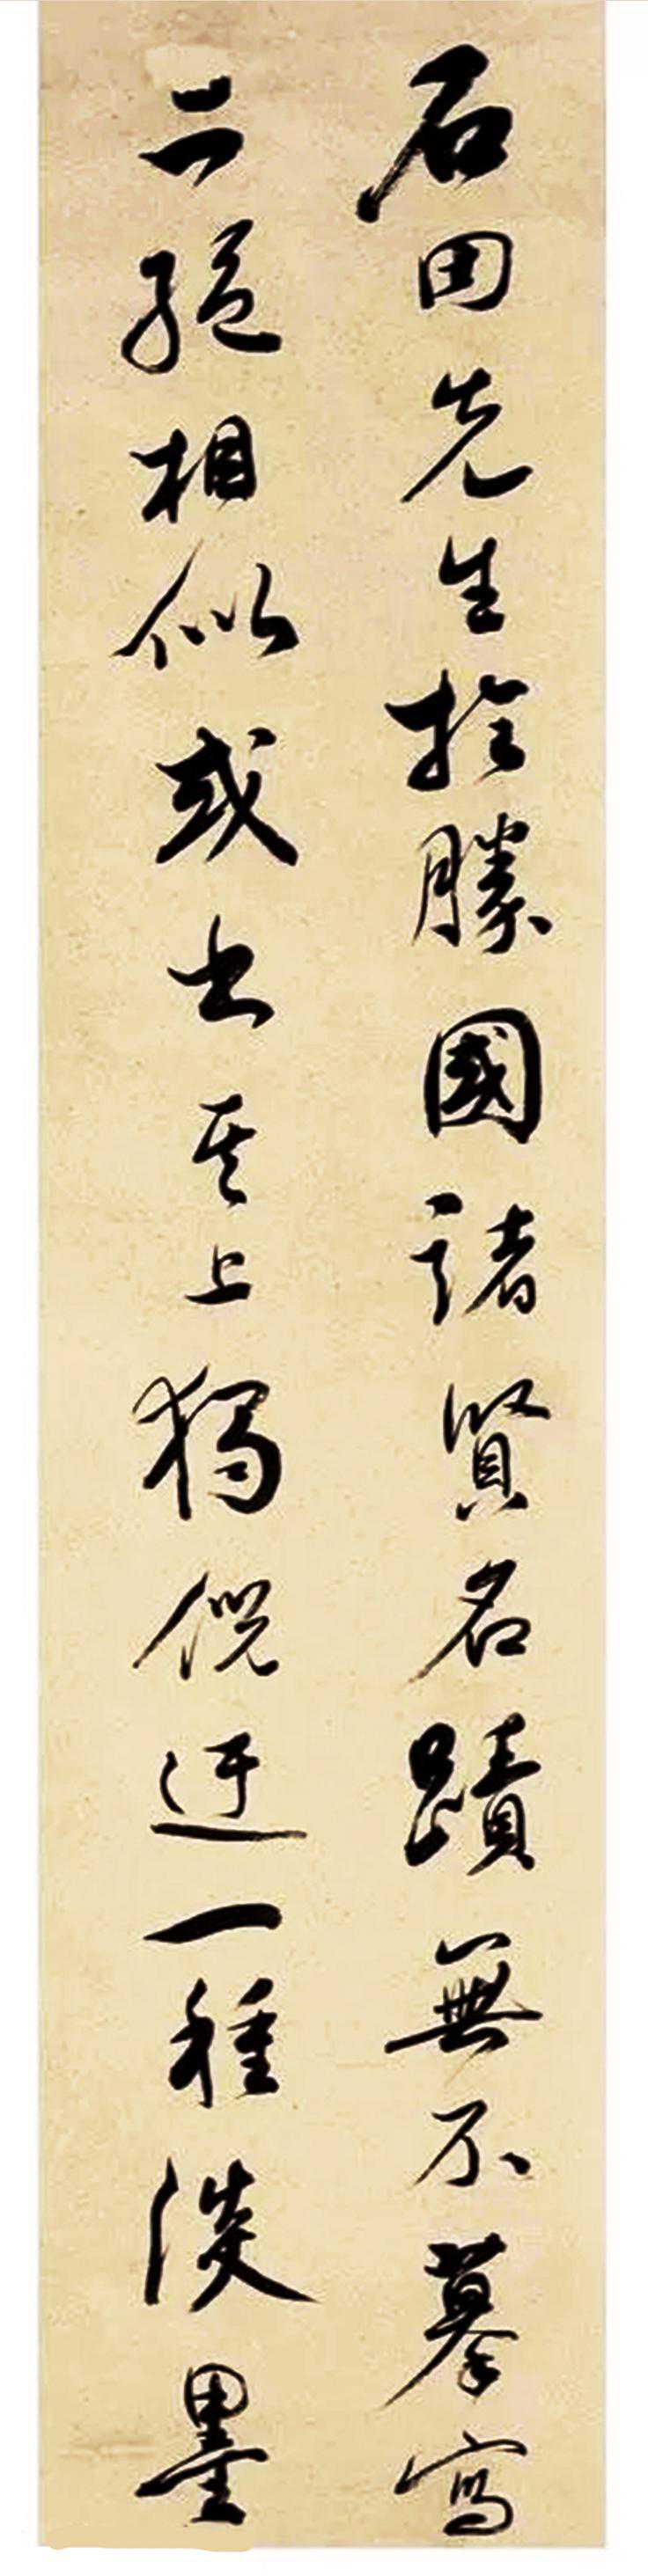 石田先生於勝國諸賢名蹟無不摹寫
亦絕相似或出其上獨倪迂一種淡墨